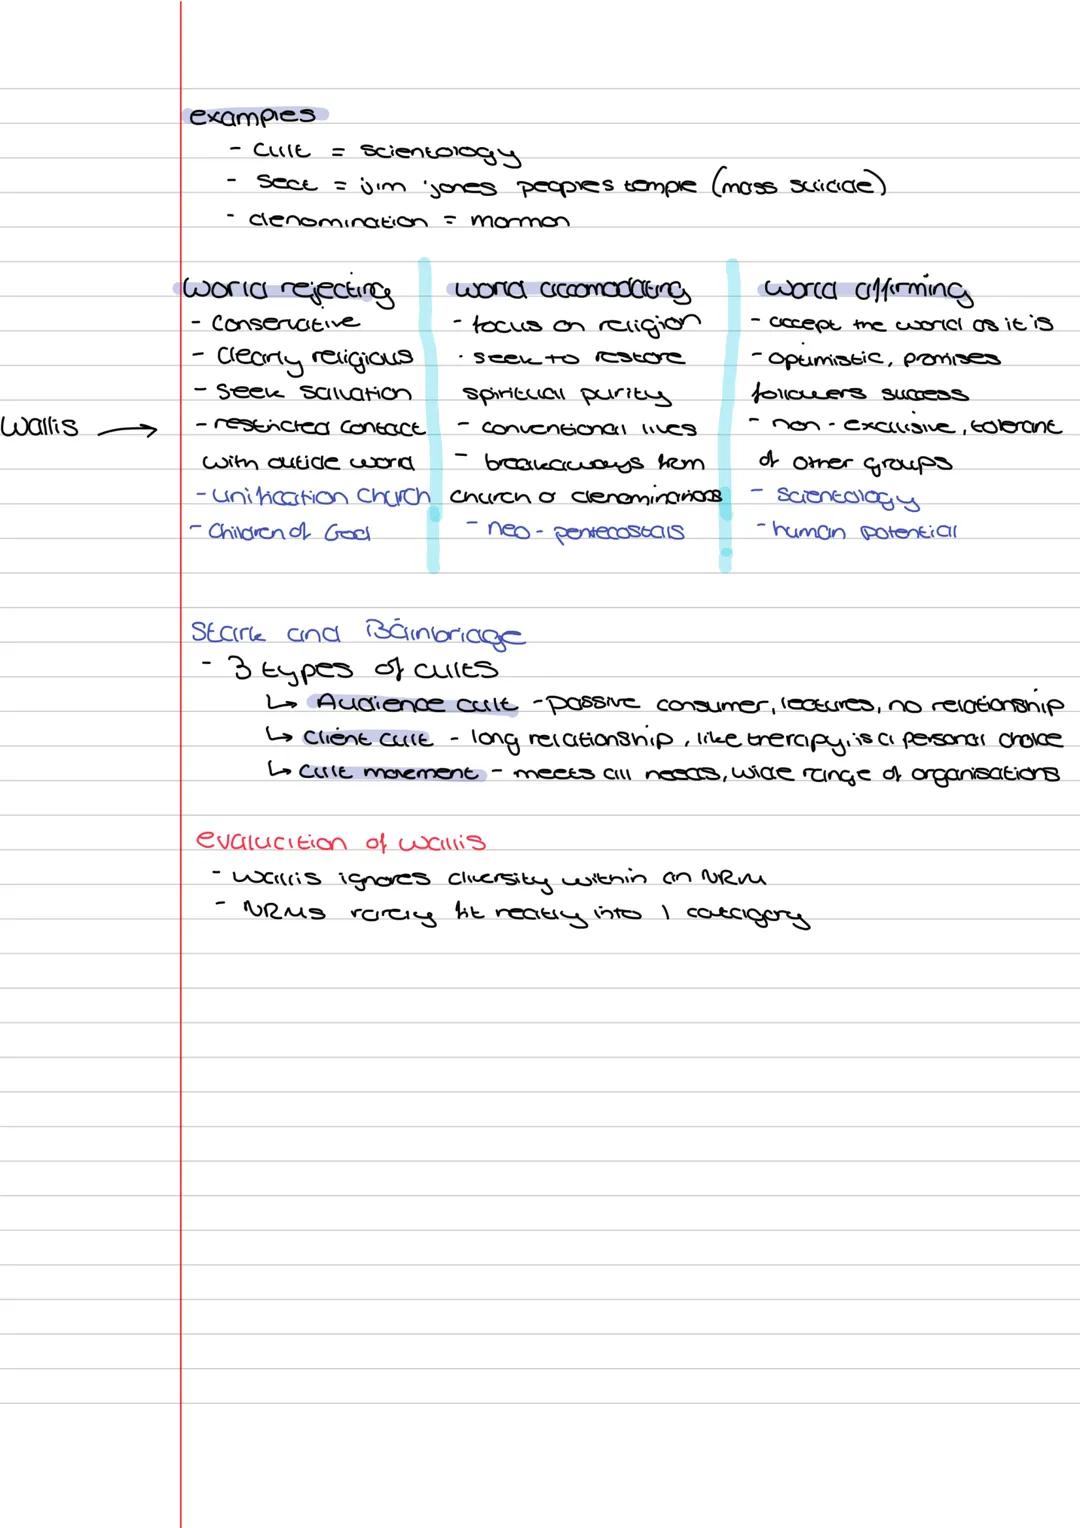 examples
- cult = scientology
- sect = jim jones peoples temple (mass suicide)
- denomination = mormon
Wallis →
world rejecting
- conservative
- clearly religious
- seek salvation
- restricted contact
with outide world
- unification church
- Children of God
world accomodating
- focus on religion
- seek to restore
spiritual purity
- conventional lives
- breakaways from
church or denominations
- neo-pentecostals
world affirming
- accept the world as it is
- optimistic, promises
followers success
- non-exclusive, tolerant
of other groups
- scientology
- human potential
Stark and Bainbridge
- 3 types of cults
↳ Audience cult - passive consumer, lectures, no relationship
↳ client cult - long relationship, like therapy, is a personal choice
↳ cult movement - meets all needs, wide range of organisations
evaluation of wallis
- wallis ignores diversity within an NRM
- NRMs rarely fit neatly into 1 catagory